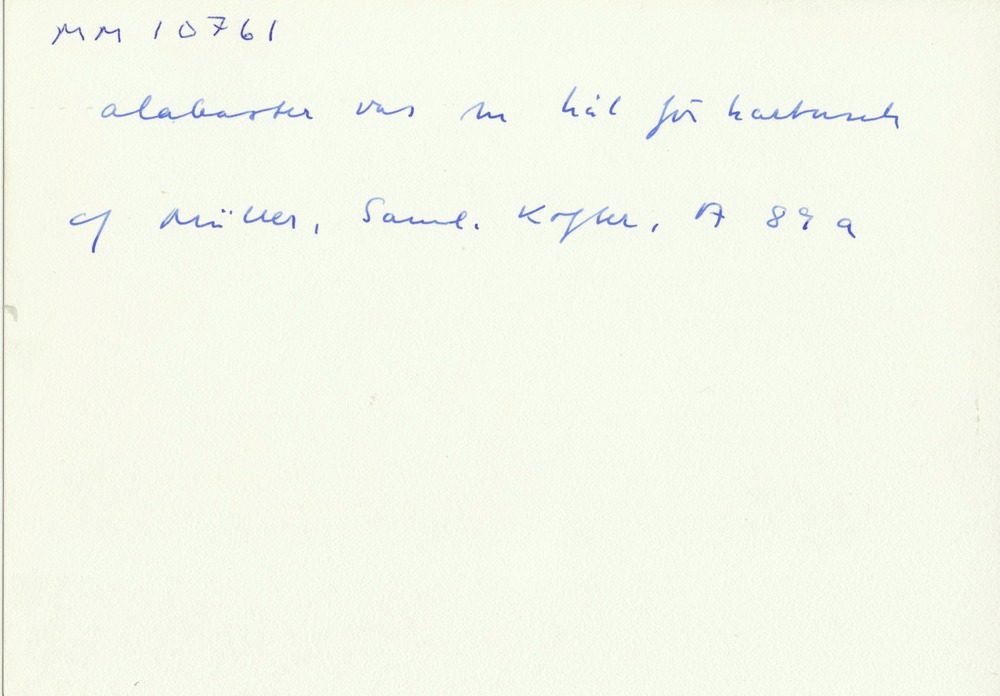 MM 10761
alabaster vas m hål för kartusch
cf Müller, Samml. Kofler, A 89 a